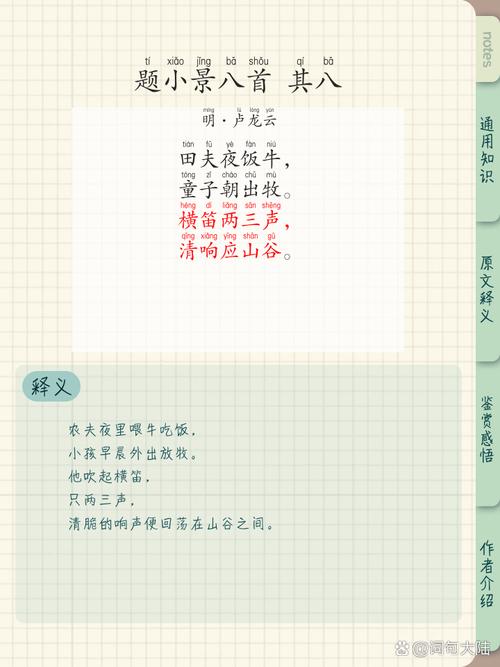 tí xiǎo jǐng bā shǒu qí bā
题小景八首 其八
míng lú lóng yún
明·卢龙云
tián fū yè fàn niú
田夫夜饭牛，
tóng zǐ zhāo chū mù
童子朝出牧。
héng dí liǎng sān shēng
横笛两三声，
qīng xiǎng yīng shān gǔ
清响应山谷。
释义
农夫夜里喂牛吃饭，
小孩早晨外出放牧。
他吹起横笛，
只两三声，
清脆的响声便回荡在山谷之间。
notes
通用知识
原文释义
鉴赏感悟
作者介绍
@词句大陆